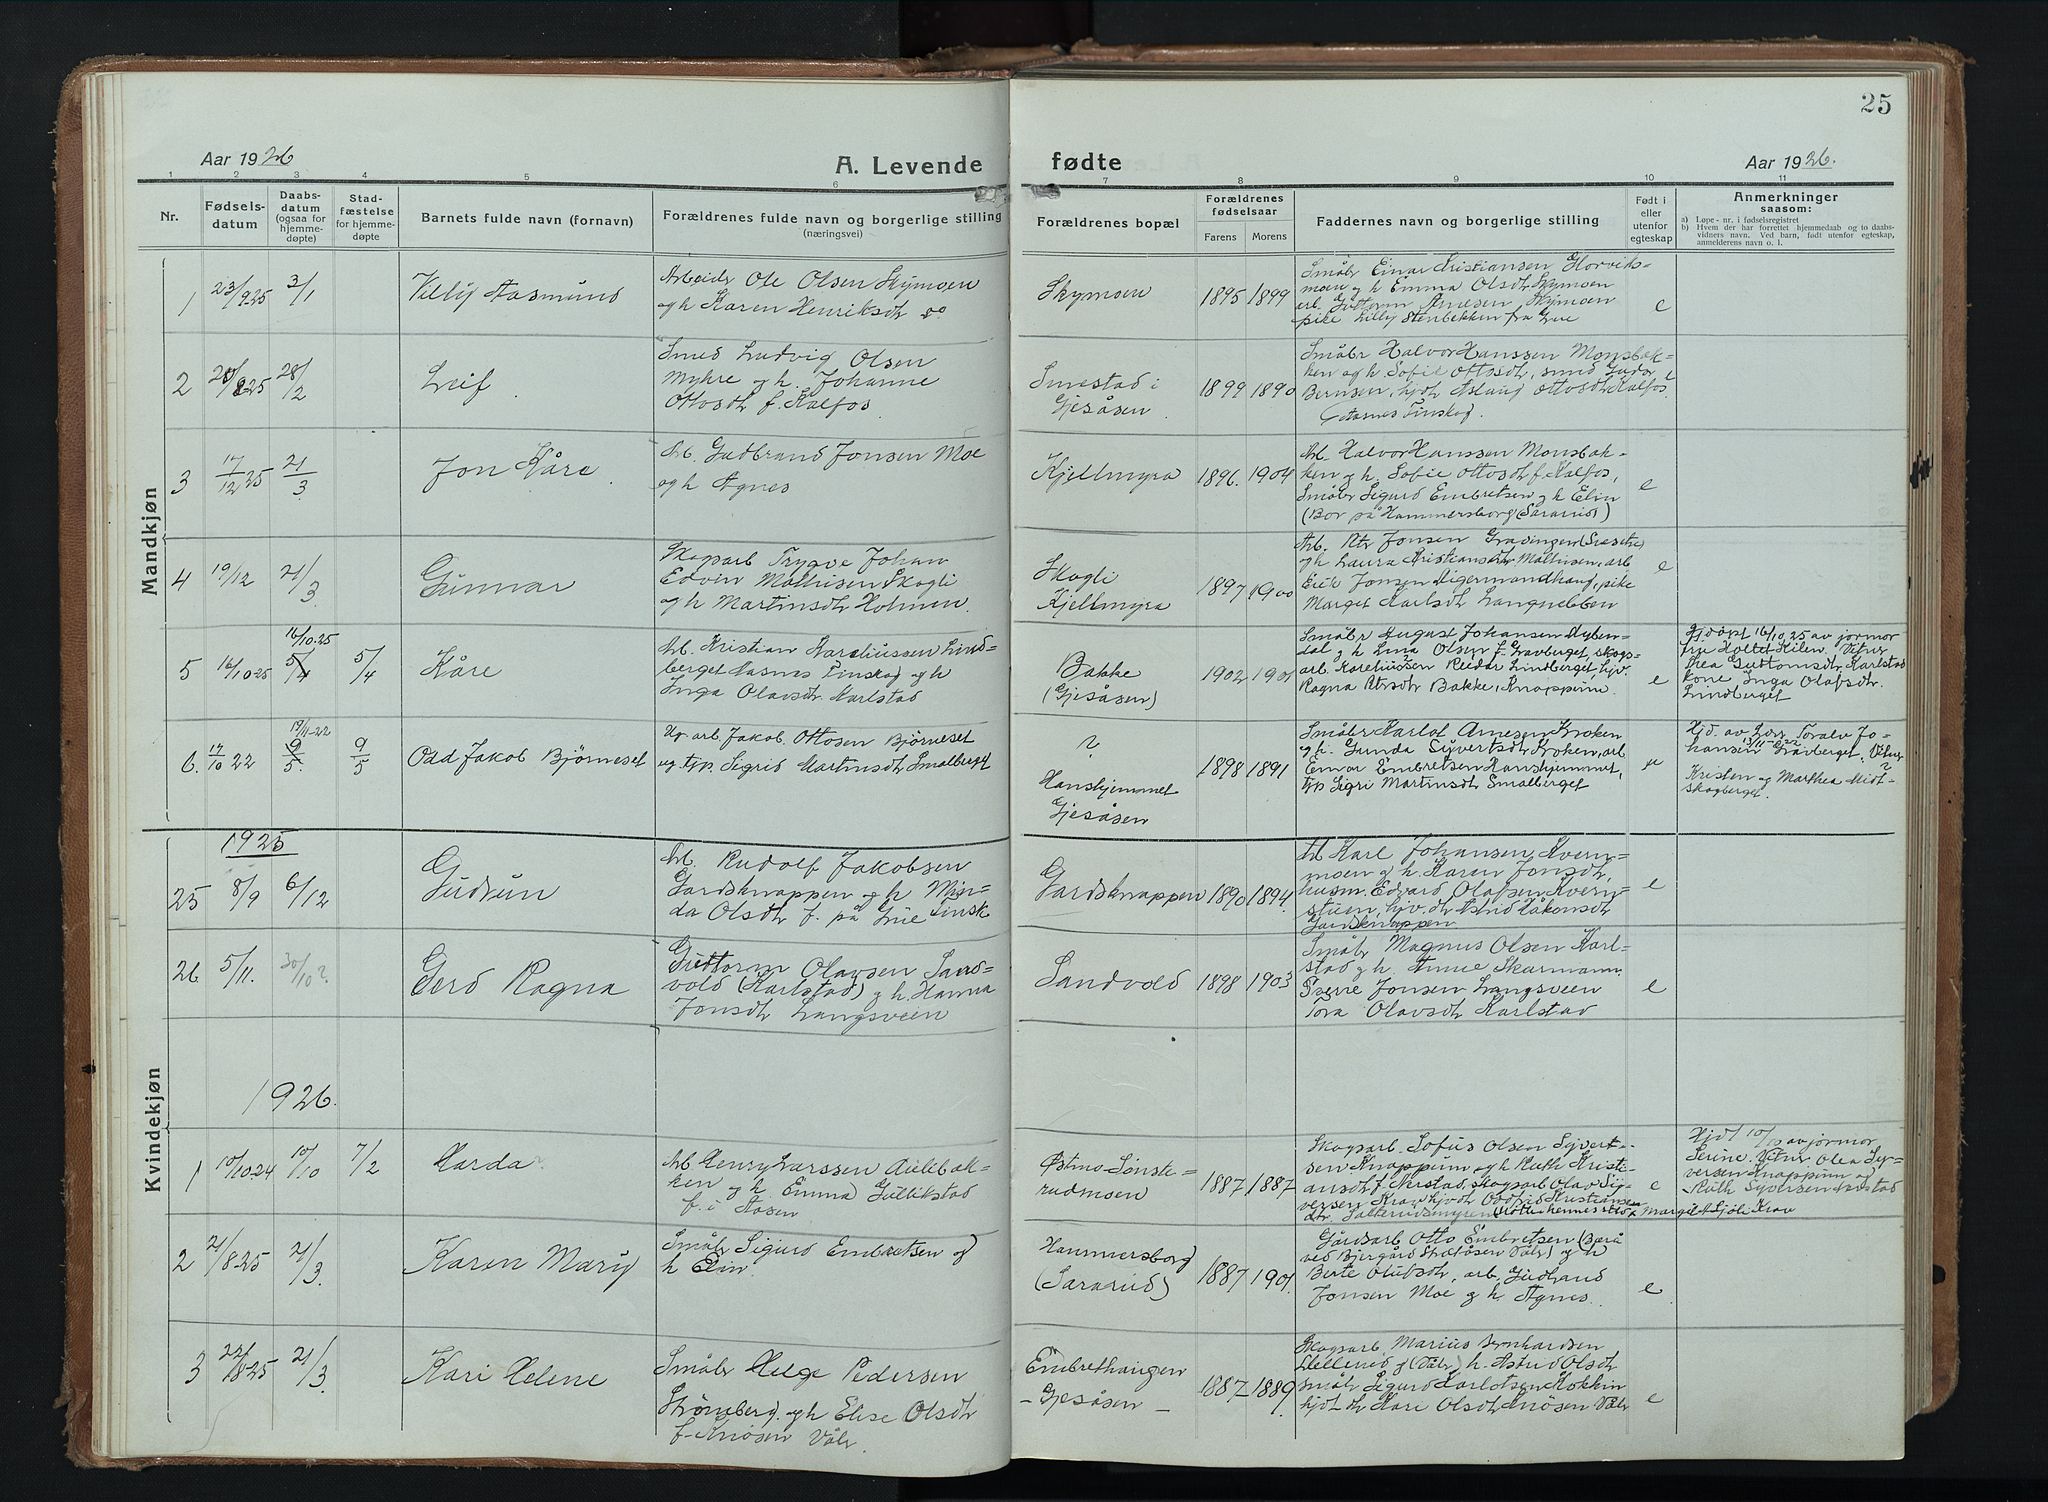 25
Aar 1926
A. Levende fødte
Aar 1926.
1 2 3 4 5 6 7 8 9 10 11
Nr.
Fødselsdatum
Daabsdatum (ogsaa for hjemmedøpte)
Stadfæstelse for hjemmedøpte
Barnets fulde navn (fornavn)
Forældrenes fulde navn og borgerlige stilling (næringsvei)
Forældrenes bopæl
Forældrenes fødselsaar
Farens Morens
Faddernes navn og borgerlige stilling
Født i eller utenfor egteskap
Anmerkninger saasom:
a) Løpe-nr. i fødselsregistret
b) Hvem der har forrettet hjemmedaab og to daabsvidners navn. Ved barn, født utenfor egteskap, anmelderens navn o. l.
Mandkjøn
1 23/9 25 3/1 Villy Aasmund
Arbeider Ole Olsen Skymoen
og h Karen Henriksdtr
Skymoen 1895 1899
Småbr Einar Kristiansen
moen og h Emma Olsdtr Skymoen
arb. Guttorm Arnesen Skymoen
pike Lilly Stenbekken fra Grue
e
2 28/2 Leif
Smed Ludvig Olsen
Myhre og h. Johanne
Ottosdtr f. Kalfos
Smestad i
Gjesåsen 1899 1890
Småbr Halvor Hanssen Monsbak-
ken og h Sofie Ottosdtr, smed
Berntsen, hjdt Aslaug Ottosdtr Kalfos
Aasnes Finskog.
e
3 17/12 25 21/3 Jon Kåre
Arb. Gudbrand Jonsen Moe
og h Agnes
Kjellmyra 1896. 1904
Arb. Halvor Hanssen Monsbak-
ken og h. Sofie Ottosdtr f. Kalfos,
Småbr Sigurd Embretsen og h Elin
(Bor på Hammersborg (Sararud)
e
4 19/12 21/3 Gunnar
Skogsarb Trygve Johan
Edvin Mathisen Skogli
og h Martinsdtr Holmen.
Skogli
Kjellmyra 1897 1900
Arb. Jonsen
og h Laura Kristiansdtr Mathisen, arb
Erik Jonsen pike
Marget Karlsdtr Langnebben
e
5 16/10 25 16/10.25 5/4 5/4 Kåre
Arb. Kristian Kareliussen Lind-
berget Aasnes Finskog og h
Inga Olavsdtr Karlstad
Bakke
(Gjesåsen) 1902 1901
Småbr August Johansen Myben-
dal og h Lina Olsen f. Gravberget, skogs-
arb. Kareliussen Reidar Lindberget, hjv.
Ragna Bakke, Knappum.
e
Hj. døpt 16/10 25 av jormor
fru Holtet Kilen. Vitner
Thea Guttormsdtr Karlstad
kone Inga Olafsdtr.
Lindberget
6. 17/10 22 19/11-22 9/5. 9/5 Odd Jakob Bjørneset
Ug arb. Jakob Ottosen Bjørneset
ug. tjp. Sigrid Martinsdtr Smalberget
?
Hanshjemmet
Gjesåsen 1898 1891
Småbr Karlot Arnesen Kroken
og h. Gunda Syvertsdtr Kroken, arb
Einar Embretsen Hanshjemmet,
tjp Sigri Martinsdtr Smalberget
Hjd. av Toralv Jo-
hansen Gravberget, Vitner
Kristen og Marthea Midt-
skogberget
1925
25 8/9 6/12 Gudrun
Arb. Rudolf Jakobsen
Gardsknappen og h
Olsdtr f. på Grue Finsk
Gardsknappen 1890 1894
Arb Karl Johansen Kvern-
moen og h. Karen Jonsdtr,
husm. Edvard Olafsen Kvern-
stuen, hjv. dtr Astrid Håkonsdtr
Gardsknappen
e
26 5/11. 30/10? Gerd Ragna
Guttorm Olavsen Sand-
vold (Karlstad) og h. Hanna
Jonsdtr Langsveen
Sandvold 1898 1903
Småbr Magnus Olsen Karl-
stad og h. Anne Skarmann.
Sverre Jonsen Langsveen
Tora Olavsdtr Karlstad
e
Kvindekjøn
1926.
1 10/10 24 10/10 7/2 Harda
Arb. Henry Larssen
ken og h. Emma Gullikstad
f. i Aasen
Østmo-Sønsk-
rudmoen 1887 1887
Skogsarb. Sofus Olsen Syvert-
sen Knappum og h Ruth Kristi-
ansdtr f. Nerstad, skogsarb Olav
versen Krav
Margit
e
Hjdt 10/10 av jormor
Serine. Vitner Olea Sy-
versen Knappum og
Ruth Syversen
2 21/8 25 21/3 Karen Mary
Småbr Sigurd Embretsen og
h Elin
Hammersborg
(Sararud) 1887 1901
Gårdsarb Otto Embretsen
ved Våler) og h
Berte Olufsdtr, arb. Gudbrand
Jonsen Moe og h. Agnes.
e
3 22/ 25 21/3 Kari Helene
Småbr Helge Pedersen
Strømberg og h Elise Olsdtr
f. Knosen Våler
Embrethaugen
- Gjesåsen - 1887 1889
Skogsarb Marius Bernhardsen
(Våler) h. Astrid Olsdtr
småbr Sigurd Karlotsen
hjdt dtr Kare Olsdtr Knosen Våler
e